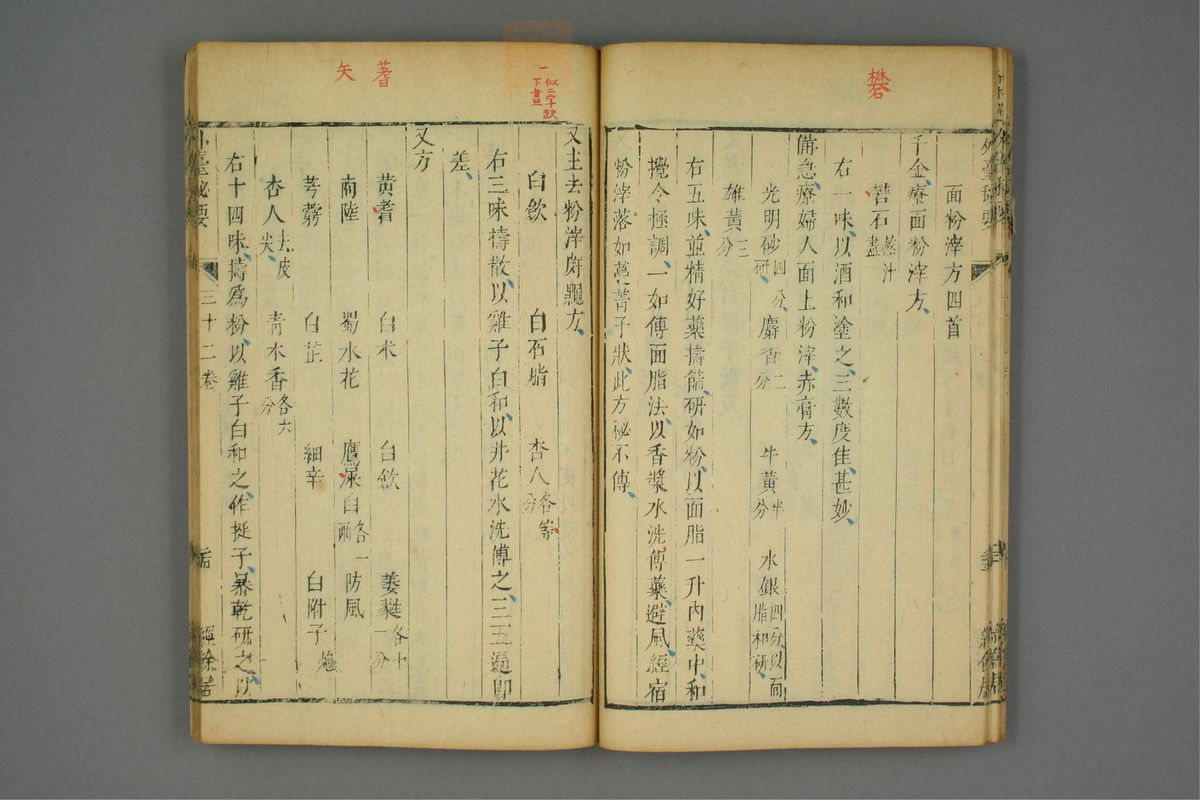 礬
面粉滓方四首
千金療面粉滓方
礬石燕汁盡
右一味以酒和塗之三數度佳甚妙
備急療婦人面上粉滓赤膏方
光明砂四分研 麝香二分 牛黃半分 水銀四分以面脂和研
雄黃三分
右五味並精好藥擣篩研如粉以面脂一升內藥中和
攪令極調一如傅面脂法以香漿水洗傅藥避風經宿
粉滓落如蔓菁子狀此方祕不傳
一 似二字欽下畫
蓍 矢
又主去粉滓皯黵方
白斂 白石脂 杏人各等分
右三味擣散以雞子白和以井花水洗傅之三五遍即
差
又方
黃耆 白朮 白斂 萎蕤各十一分
商陸 蜀水花 鷹屎白各一兩 防風
芎藭 白芷 細辛 白附子炮
杏人去皮尖 青木香各六分
右十四味擣為粉以雞子白和之作挺子暴乾研之以
外臺祕要 三十二卷 經餘居